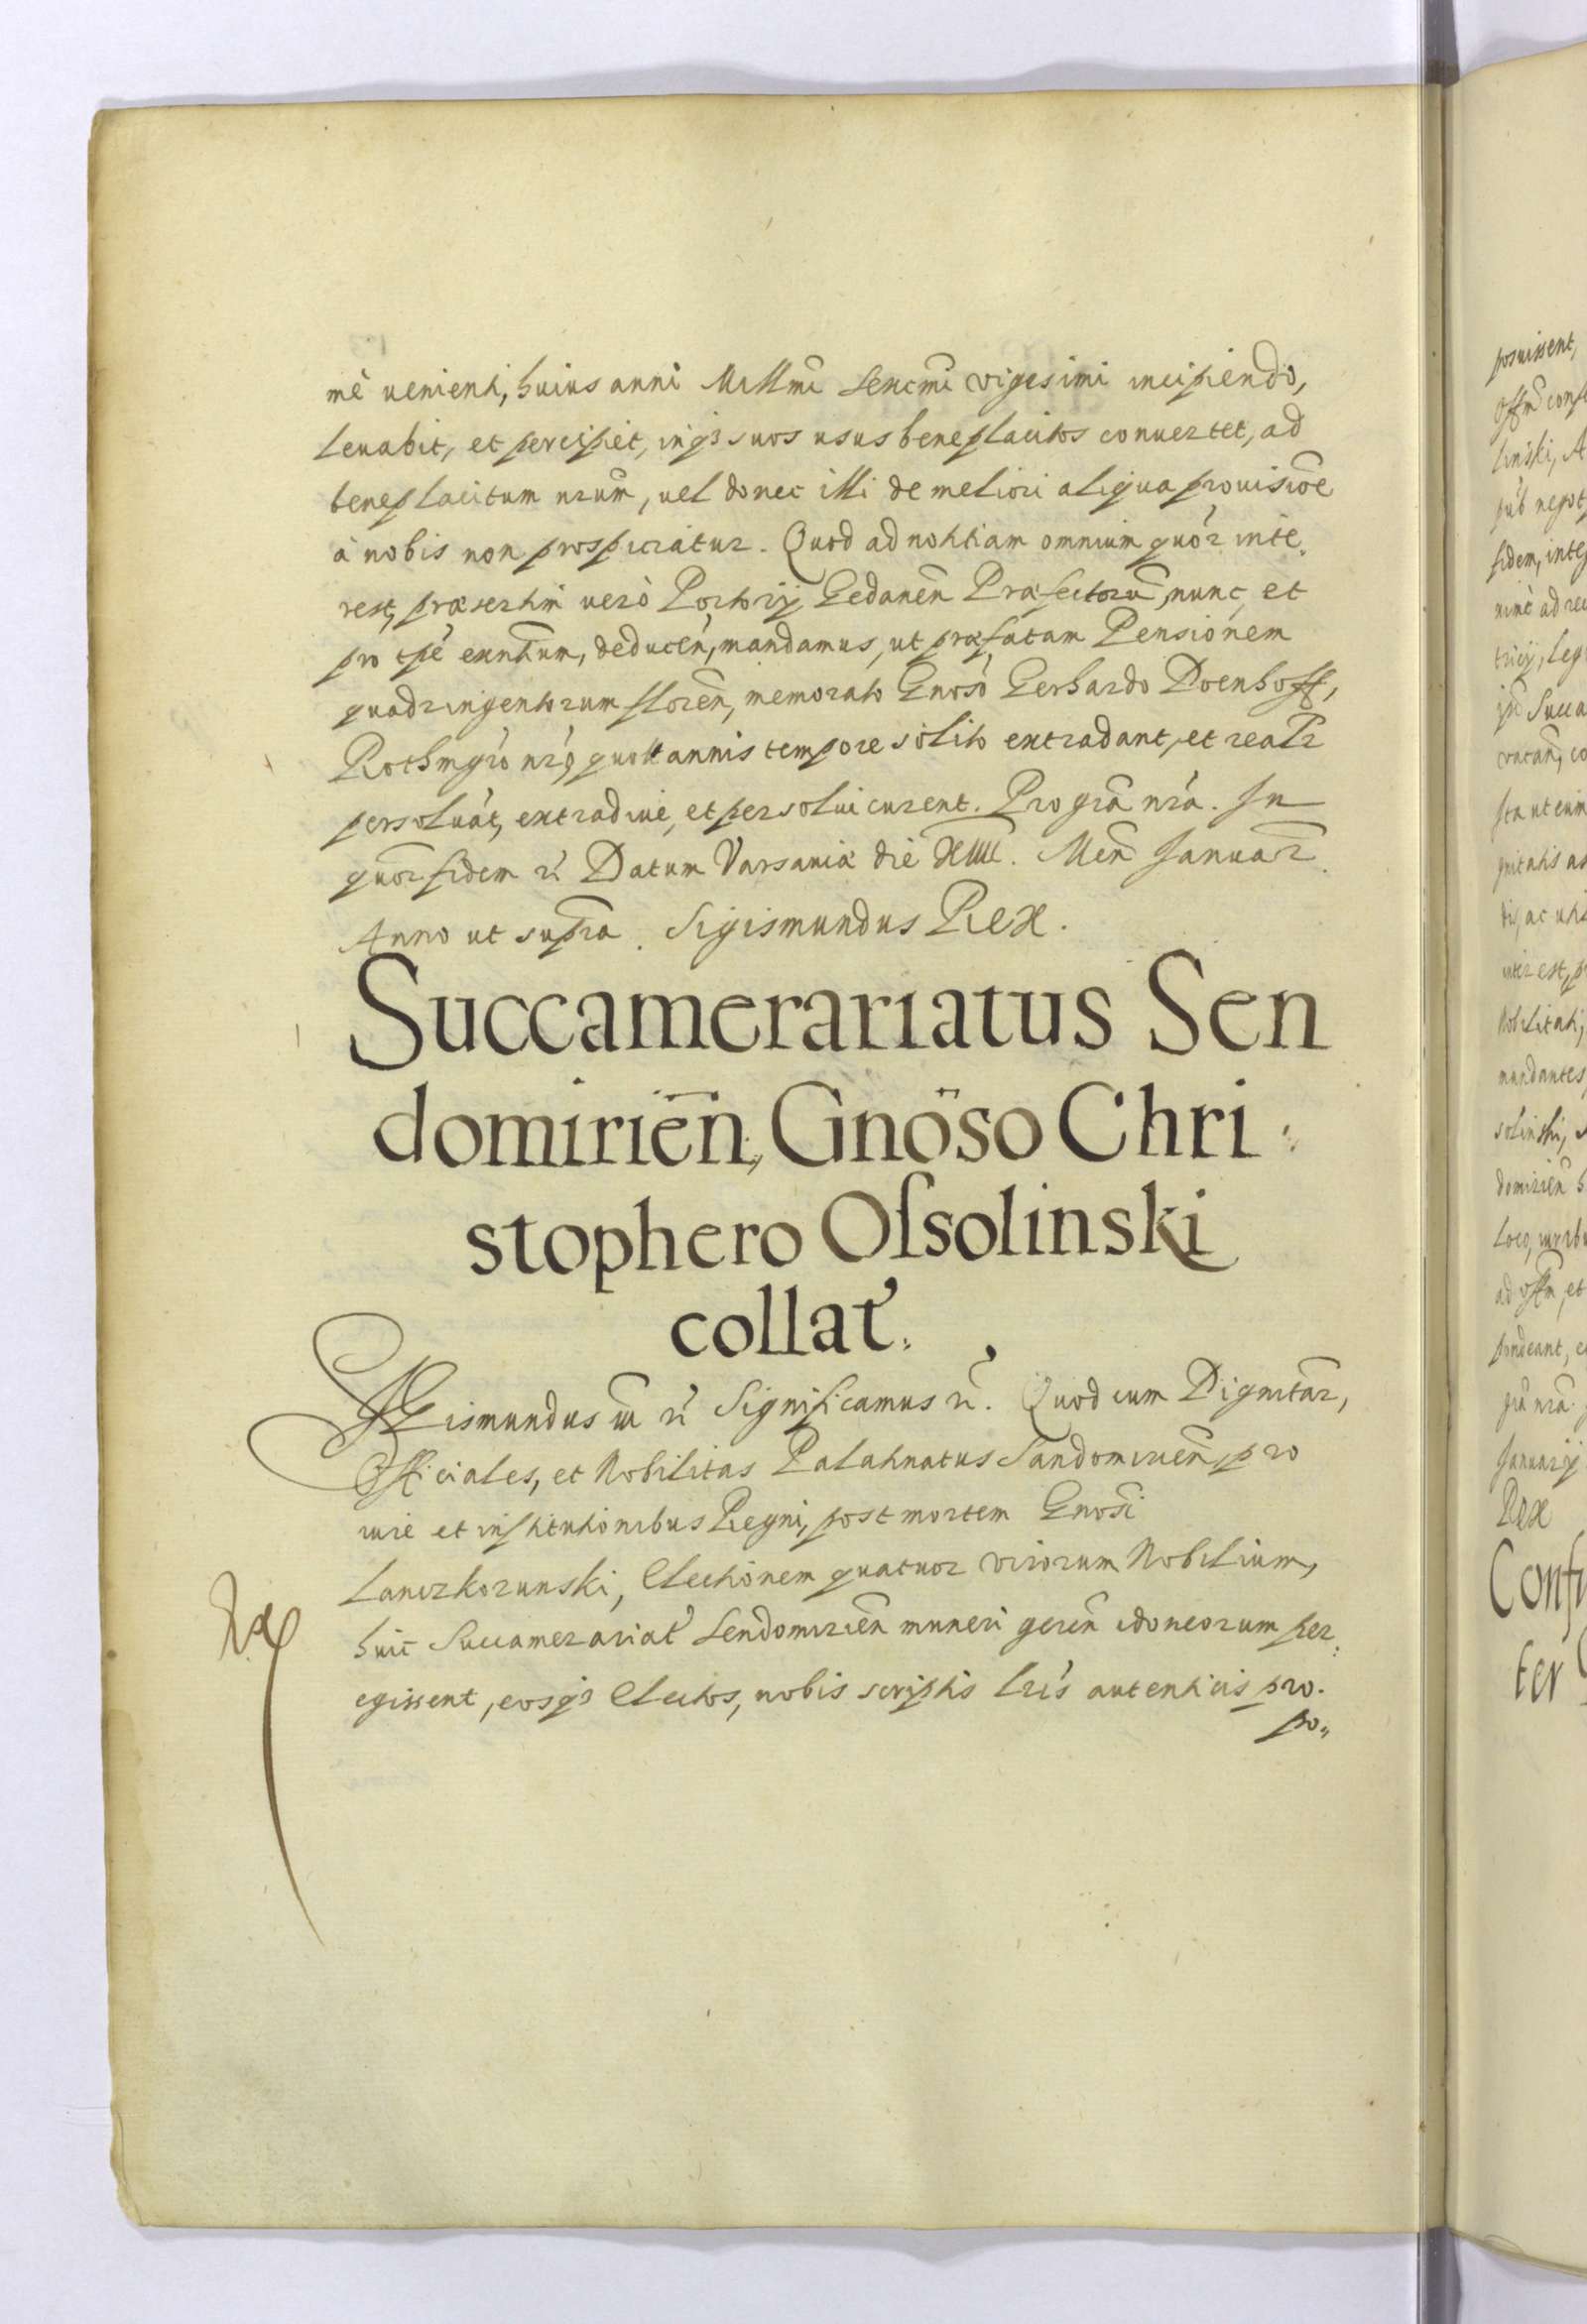 mè uenienti, huius anni Millmi Sexcmi vigesimi incipiendo,
leuabit, et percipiet, inq3 suos usus beneplacitos conuertet, ad
beneplacitum nrum, uel donec illi de meliori aliqua prouisioe
à nobis non prospiciatur. Quod ad notitiam omnium quor inte,
rest, præsertim uerò Portorij Gedanen Præfectoru, nunc, et
pro tpe exntium, deducen, mandamus, ut præfatam Pensionem
quadringentorum floren, memorato Gnoso Gerhardo Doenhoff,
Rothmgro nro, quottannis tempore solito extradant, et realr
persoluat, extradiue, et persolui curent. Pro gra nra. In
quor fidem Datum Varsauiæ die XIIII. Men Januar
Anno ut supra. Sigismundus Rex.
Succamerariatus Sen
domirien, Gnoso Chri:
stophero Oſsolinski
collat.
Sigismundus III Significamus. Quod cum Dignitar,
Officiales, et Nobilitas Palatinatus Sandomirien, pro
iure et institutionibus Regni, post mortem Gnosi
Lanczkorunski, Electionem quatuor virorum Nobilium,
huic Succamerariat Sendomirien muneri geren idoneorum per:
egissent, eosq3 Electos, nobis scriptis lris autenticis pro.
po„
posuissent,
linski, A
sub negot
fidem, inte
Succa
vacan, co
inter est, p
Nobilitati,
mandantes
solinski,
domirien
gra nra
Januarij
Rex
Conf
ter